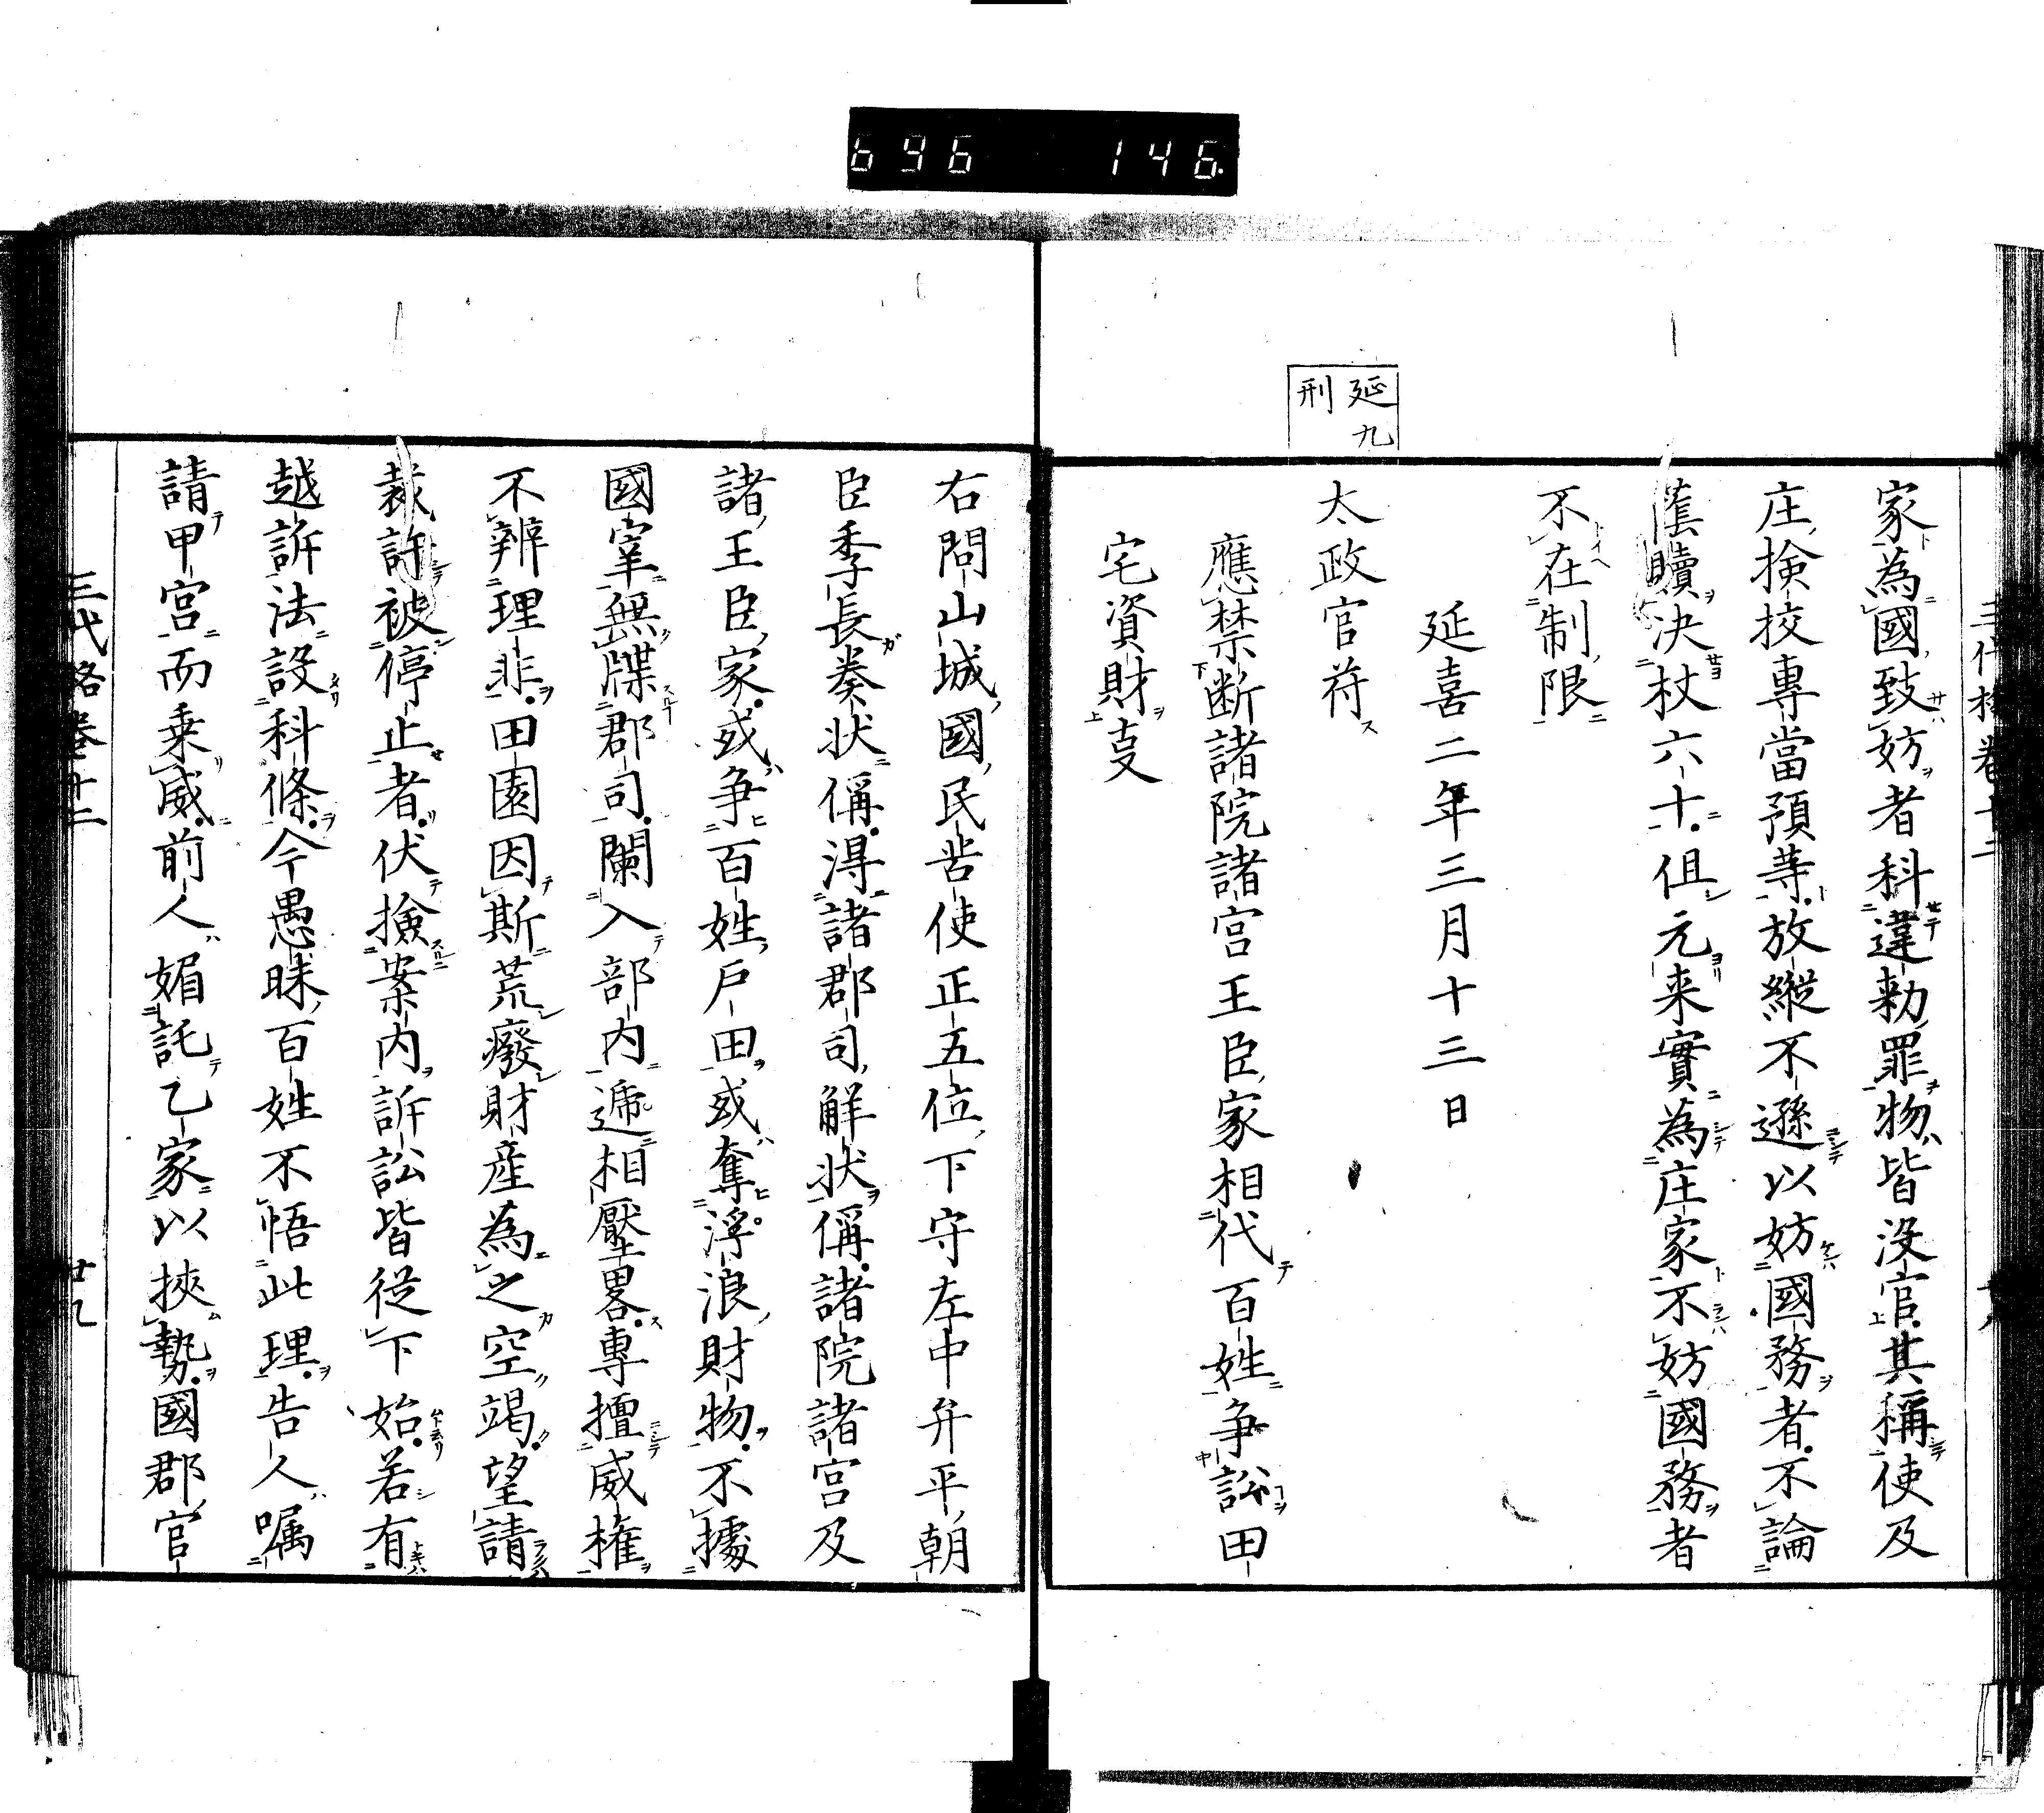 696 146
延九
刑
家為國致妨者科違勅罪物皆没官其稱使及
庄撿挍專當預等放縱不遜以妨國務者不論
蔭贖决杖六十但元来實為庄家不妨國務者
不在制限
延喜二年三月十三日
太政官符
應禁断諸院諸宮王臣家相代百姓争訟田
宅資財叓
右問山城國民苦使正五位下守左中弁平朝
臣季長奏状偁得諸郡司解状偁諸院諸宮及
諸王臣家或争百姓戸田或奪浮浪財物不據
國宰無牒郡司闌入部内遞相壓畧專擅威權
不辨理非田園因斯荒廢財産為之空竭望請
裁許被停止者伏撿案内訴訟皆從下始若有
越訴法設科條今愚昧百姓不悟此理告人嘱
請甲宮而乗威前人媚託乙家以挾勢國郡官
三代格卷十二